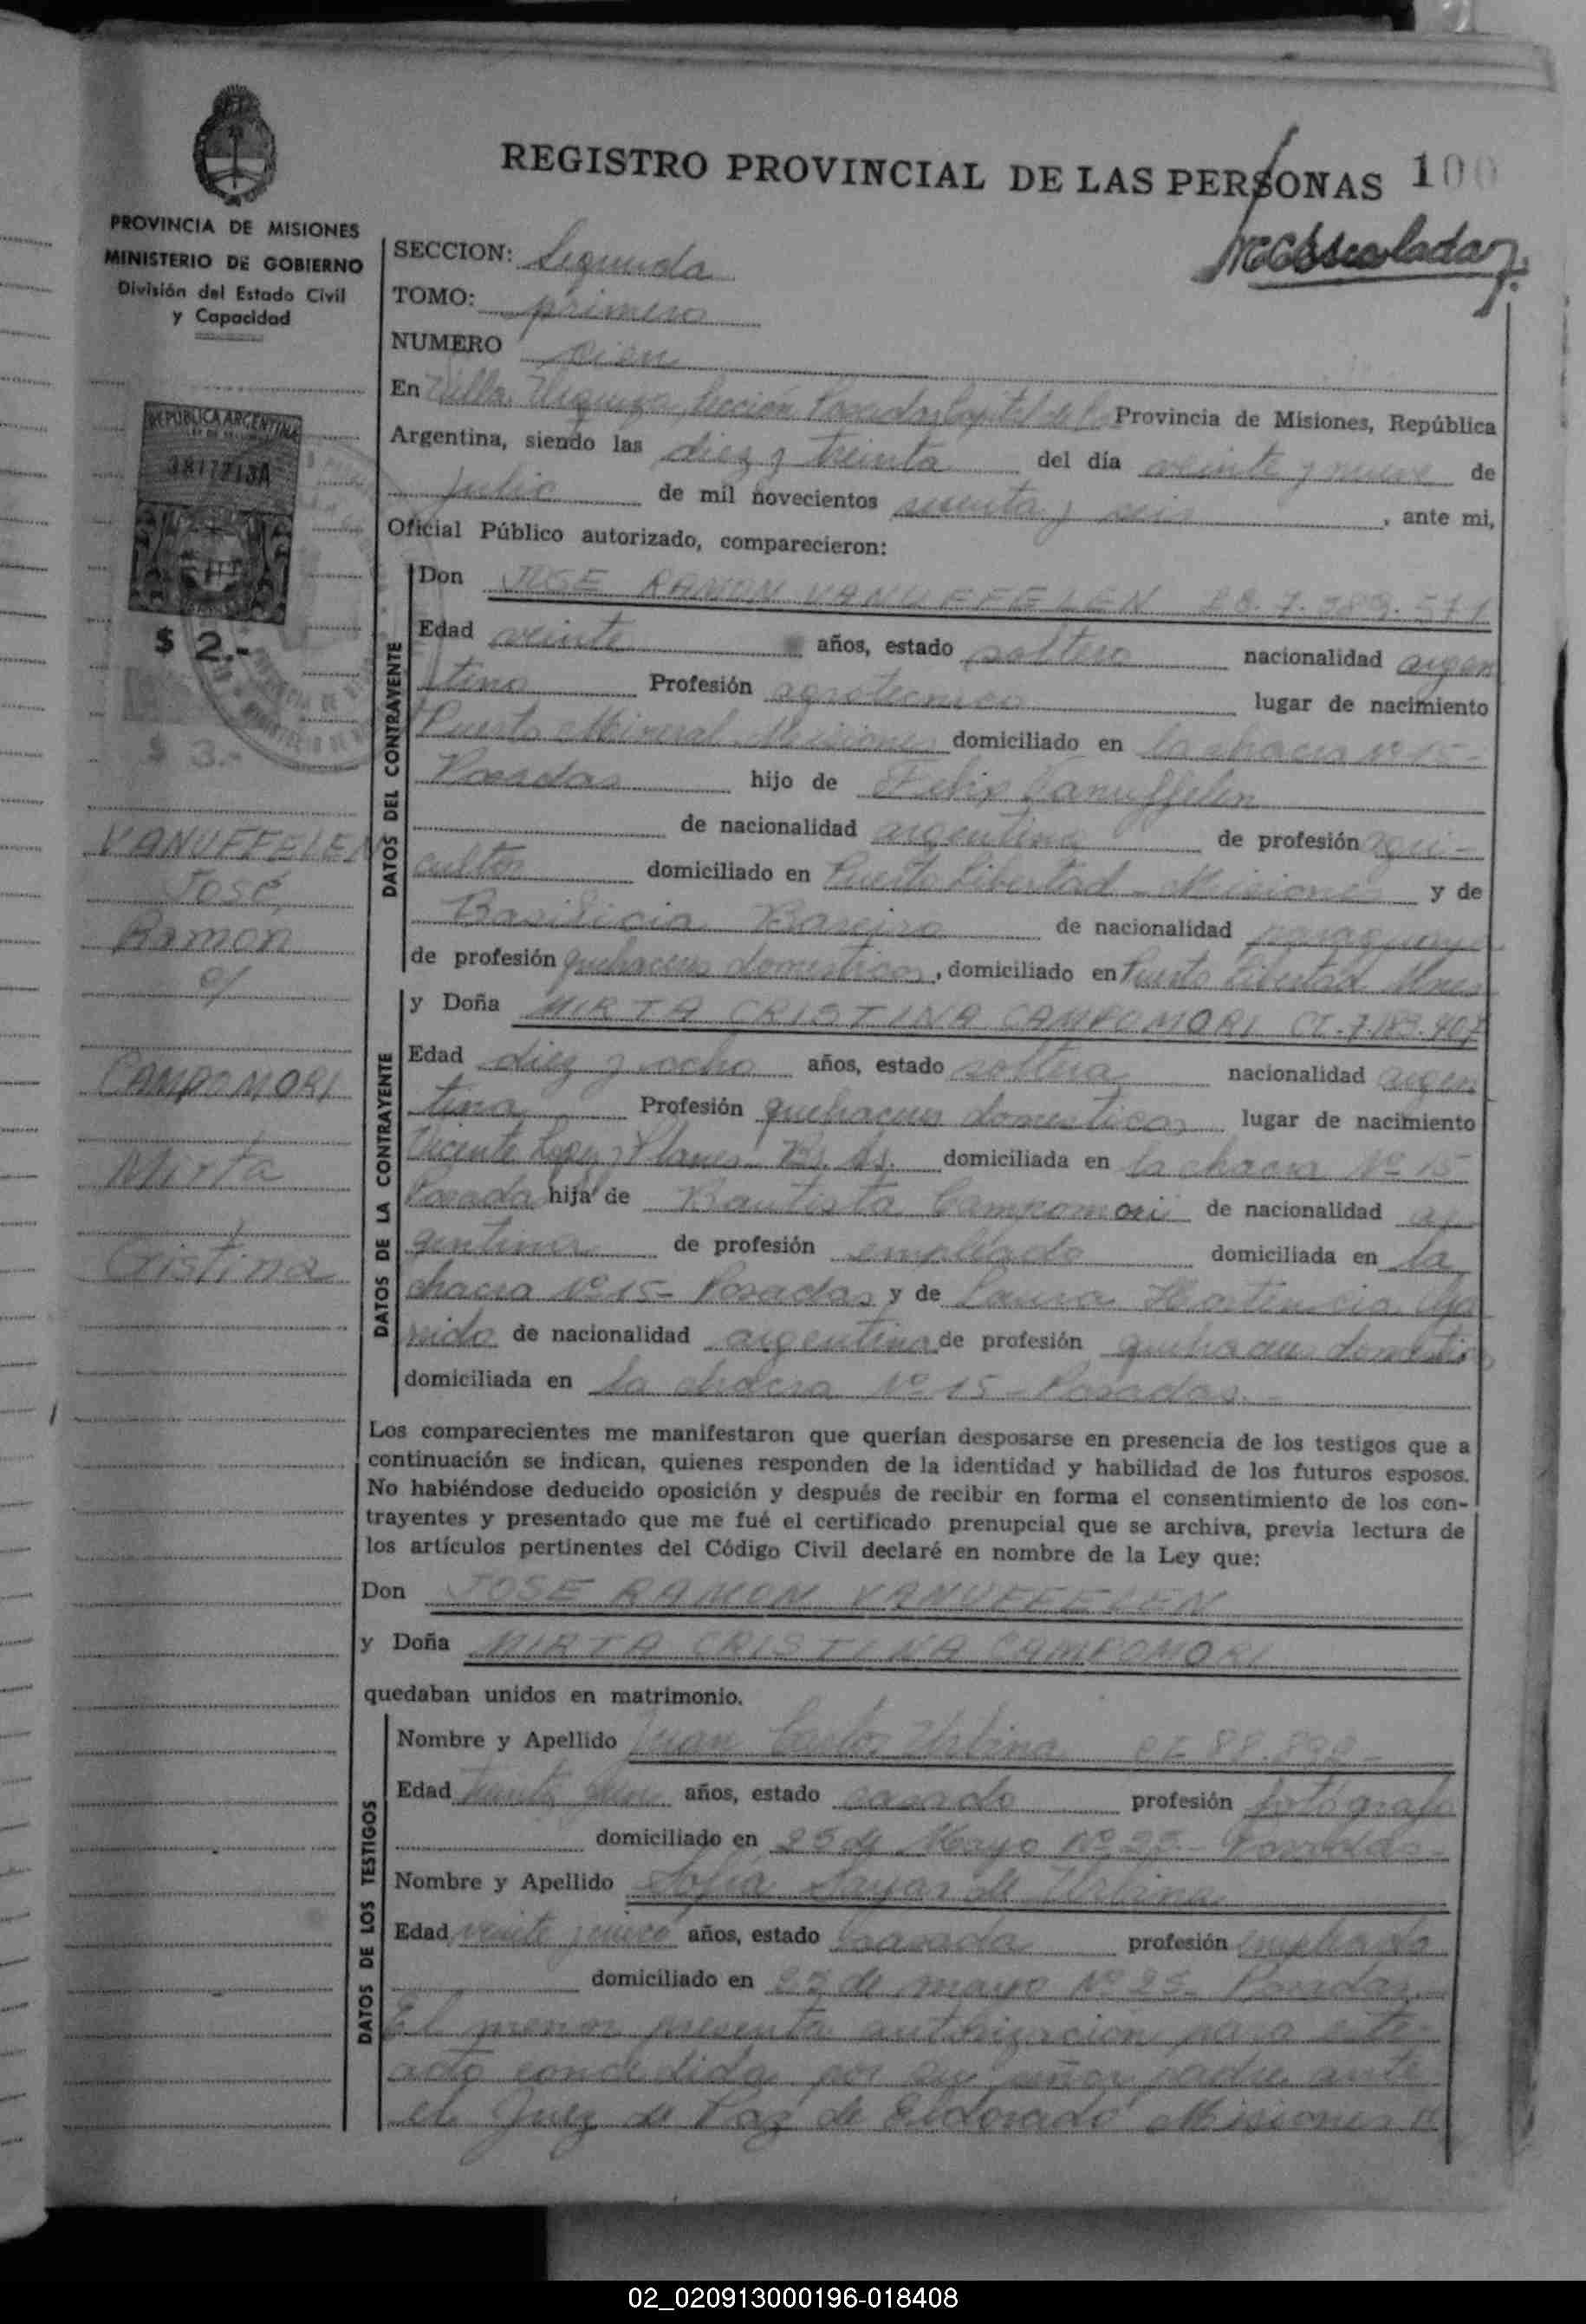 REGISTRO PROVINCIAL DE LAS PERSONAS 100
PROVINCIA DE MISIONES
MINISTERIO DE GOBIERNO
División del Estado Civil
y Capacidad
SECCION: Segunda
TOMO: primero
NUMERO cien
En Villa Urquiza Sección Posadas Capital de la Provincia de Misiones, República
Argentina, siendo las diez y treinta del día veinte y nueve de
julio de mil novecientos sesenta y seis, ante mi,
Oficial Público autorizado, comparecieron:
REPUBLICA ARGENTINA
$ 2.-
$ 3.-
DATOS DEL CONTRAYENTE
Don JOSE RAMON VANUFFELEN 7.589.571
Edad veinte años, estado soltero nacionalidad argen
tino Profesión agrotecnico lugar de nacimiento
Puerto Mineral Misiones domiciliado en la chacra Nº 15-
Posadas hijo de Felix Vanuffelen
de nacionalidad argentina de profesión agri-
cultor domiciliado en Puerto Libertad - Misiones y de
Basilicia Bareiro de nacionalidad paraguaya
de profesión quehaceres domesticos, domiciliado en Puerto Libertad Mnes
VANUFFELEN
José
Ramon
c/
CAMPOMORI
Mirta
Cristina
DATOS DE LA CONTRAYENTE
y Doña MIRTA CRISTINA CAMPOMORI CI. 7.183.407
Edad diez y ocho años, estado soltera nacionalidad argen
tina Profesión quehaceres domesticos lugar de nacimiento
Vicente Lopez y Planes Bs. As. domiciliada en la chacra Nº 15
Posadas hija de Bautista Campomori de nacionalidad ar
gentina de profesión empleado domiciliada en la
chacra Nº 15- Posadas y de Laura Hortencia
de nacionalidad argentina de profesión quehaceres domesticos
domiciliada en la chacra Nº 15 - Posadas.-
Los comparecientes me manifestaron que querían desposarse en presencia de los testigos que a
continuación se indican, quienes responden de la identidad y habilidad de los futuros esposos.
No habiéndose deducido oposición y después de recibir en forma el consentimiento de los con-
trayentes y presentado que me fué el certificado prenupcial que se archiva, previa lectura de
los artículos pertinentes del Código Civil declaré en nombre de la Ley que:
Don JOSE RAMON VANUFFELEN
y Doña MIRTA CRISTINA CAMPOMORI
quedaban unidos en matrimonio.
DATOS DE LOS TESTIGOS
Nombre y Apellido Juan Carlos Urbina
Edad treinta años, estado casado profesión fotógrafo
domiciliado en 25 de Mayo Nº 25- Posadas-
Nombre y Apellido Sofia de Urbina
Edad veinte y nueve años, estado casada profesión empleada
domiciliado en 25 de mayo Nº 25- Posadas.
El menor presenta autorizacion para este
acto concedida por su señor padre ante
el Juez de Paz de Eldorado Misiones
02_020913000196-018408